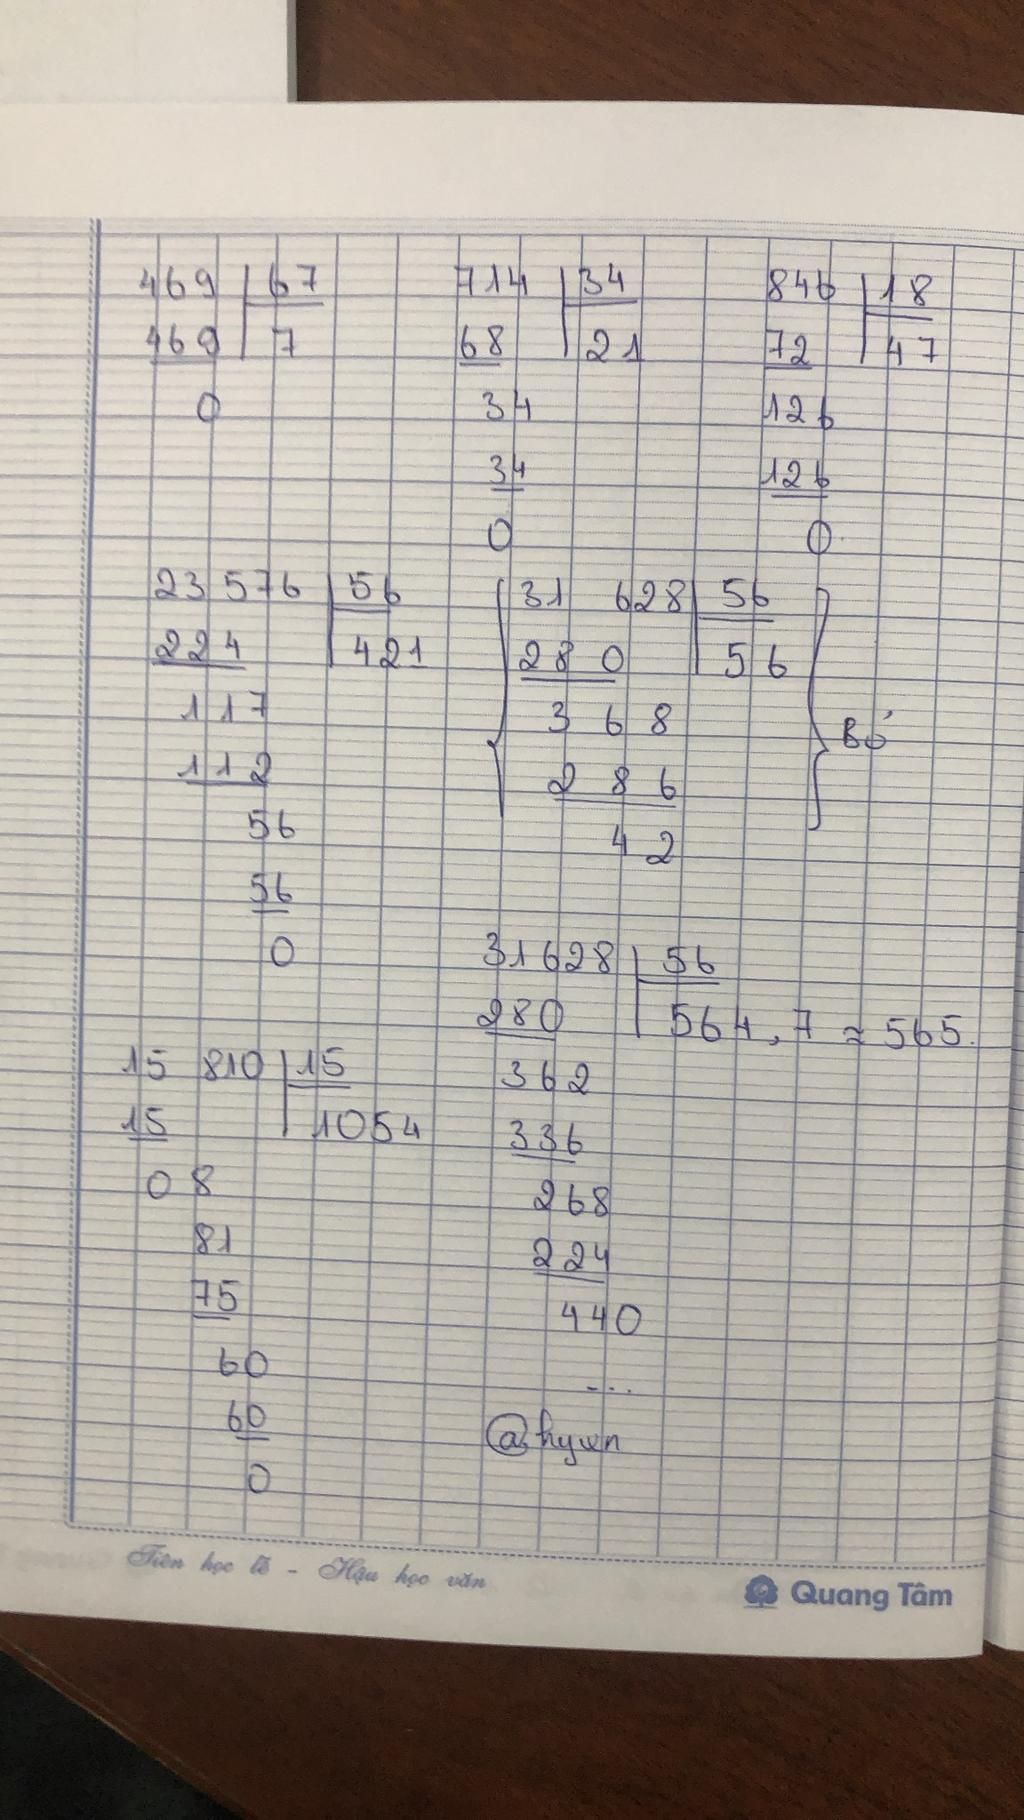 469 67
469 7
0
714 34
68 21
34
34
0
846 18
72 47
126
126
0
23 576 56
224 421
117
112
56
56
0
31 628 56
28 0 56
3 6 8
2 8 6
4 2
Bỏ
31628 56
280 564,7 ≈ 565.
362
336
268
224
440
...
15 810 15
15 1054
0 8
81
75
60
60
0
@hywn
Tiên học lễ - Hậu học văn
Quang Tâm